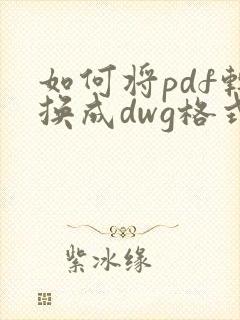 如何将pdf转
换成dwg格式
紫冰缘